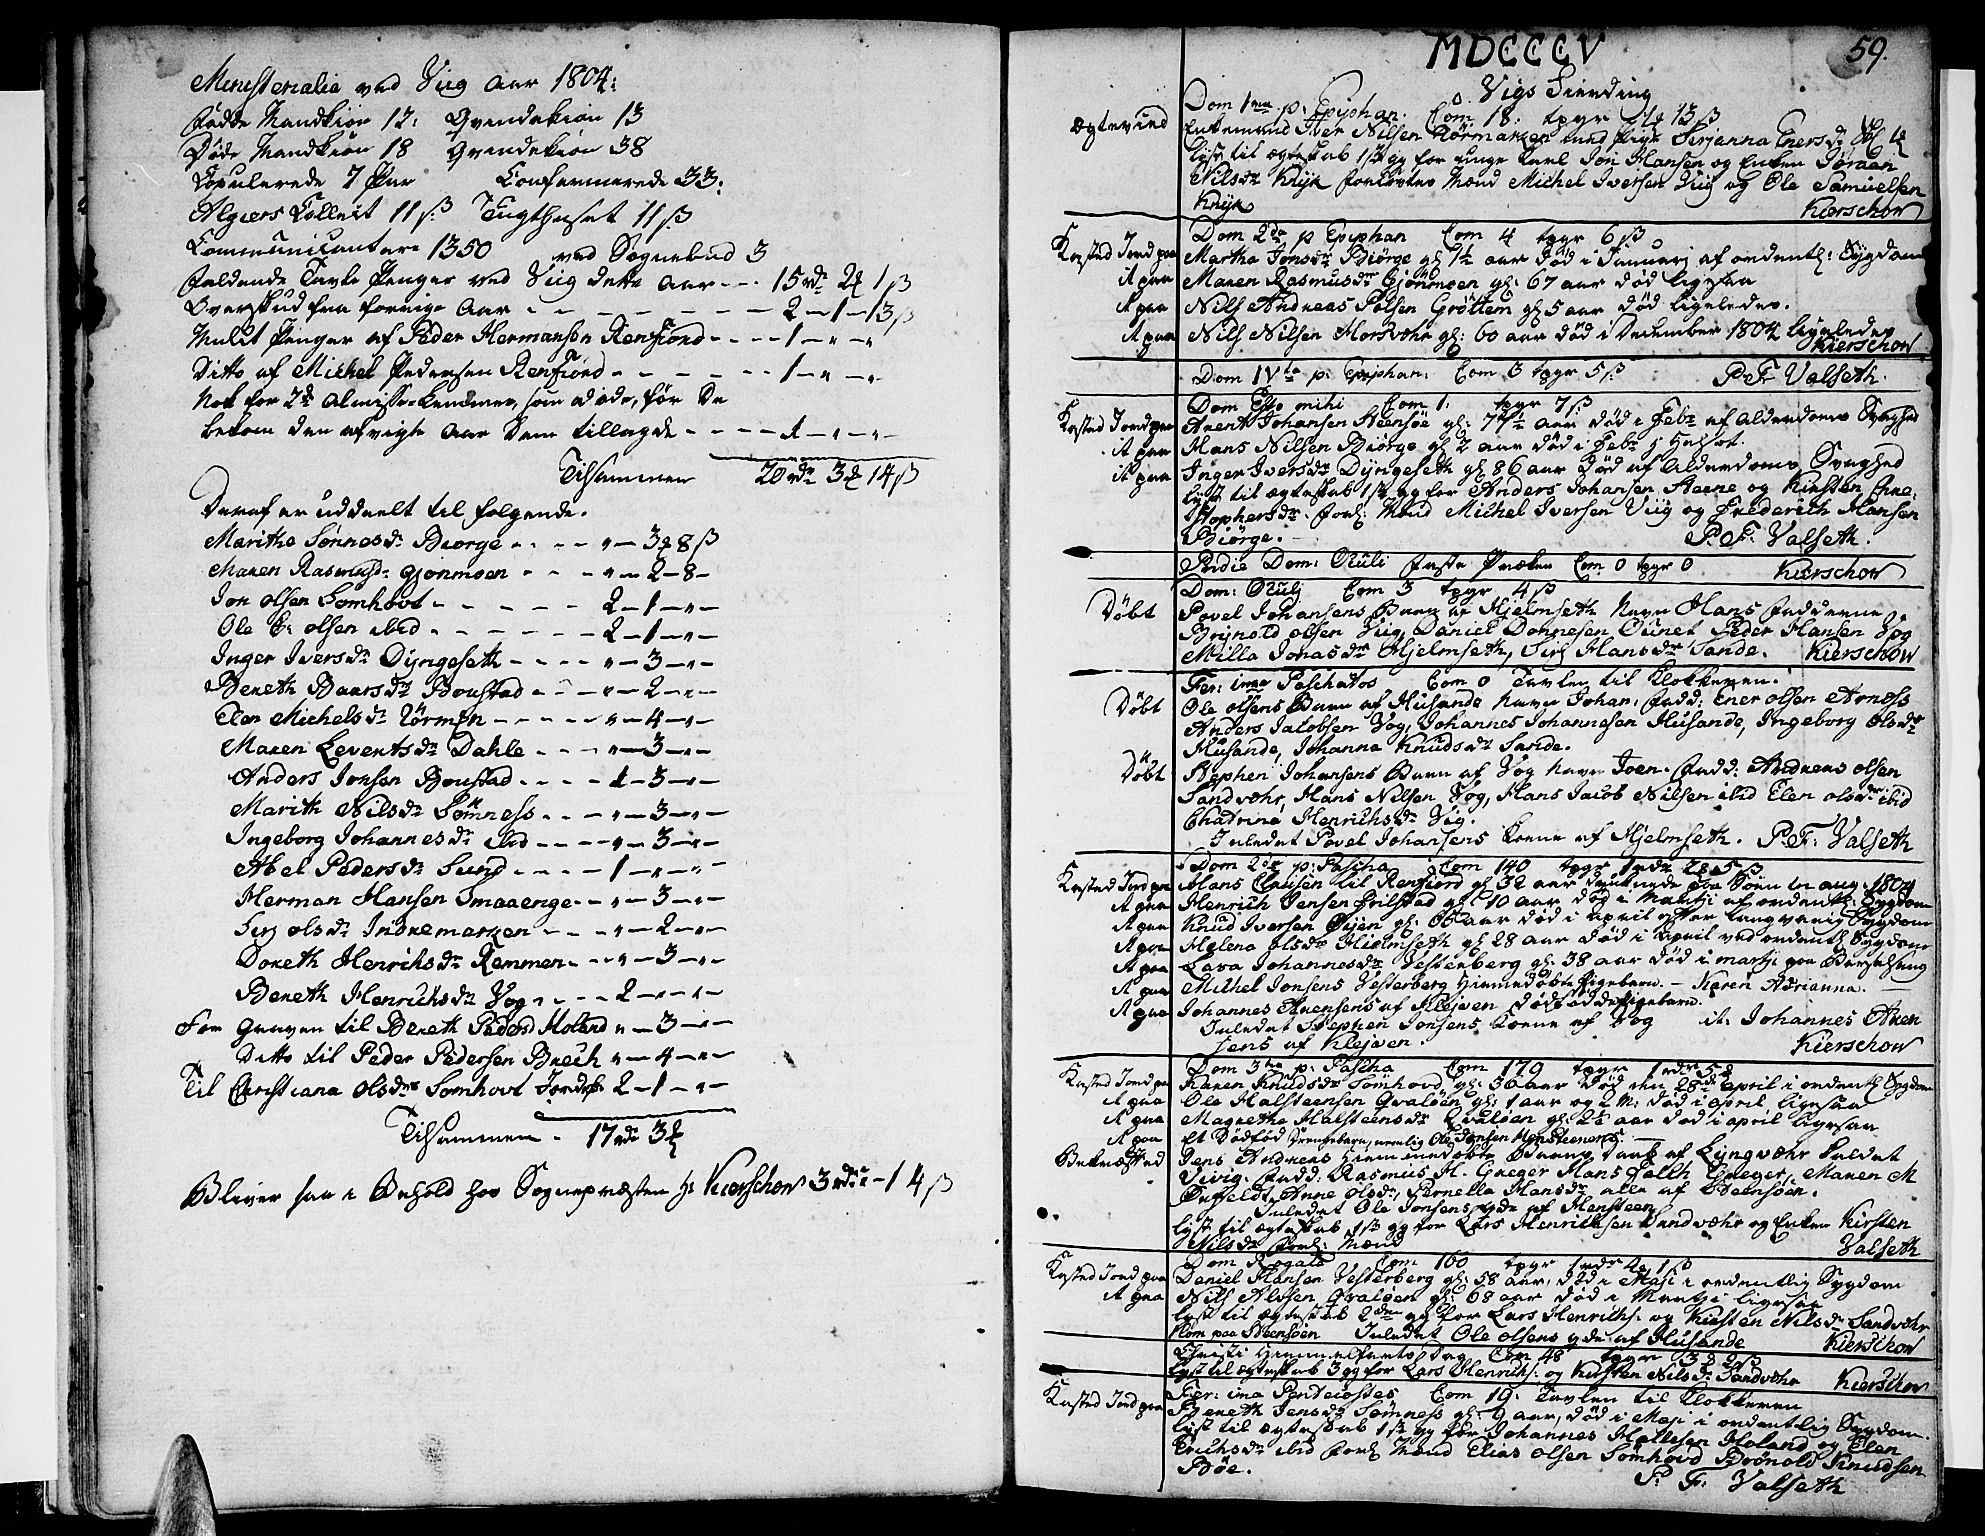 Ministerialia ved Viig aar 1804:
Fødde Mandkiøn 12: Qvendekiøn 13
Døde Mandkiøn 18 Qvendekiøn 38
Copulerede 7 Par Confirmerede 33:
Algiers Collect 11 ß Tugthuset 11 ß
Communicantere 1350 ved Sognebud 3
Faldende Tavle Penger ved Viig dette Aar - - - 15 rdr 2 1 ß
Overskud fra forrige Aar - - - 2 - 1 - 13 ß
Mulct Penger af Peder Hermansen Rensfiord - - - 1 - " - "
Ditto af Michel Pedersen Rensfiord - - - 1 - " - "
Nok for 2de Almisse Lemmer, som døde, før De
bekom den afvigte Aar Dem tillagde - - - 1 - " - "
Tilsammen 20 rdr 3 14 ß
Deraf er uddeelt til følgende.
Maritha Sønnesdr Biørge - - - " - 3 8 ß
Maren Rasmusdr Gjønmoen - - - " - 2 - 8 -
Jon Olsen Somhovt - - - 2 - 1 - " -
Ole Olsen ibid - - - 2 - 1 - " -
Inger Iversdr Dyngeseth - - - " - 3 - " -
Bereth Baarsdr Boustad - - - " - 2 - " -
Elen Michelsdr Nörmen - - - " - 4 - " -
Maren Leventsdr Dahle - - - " - 3 - " -
Anders Jonsen Boustad - - - 1 - 3 - " -
Marith Nilsdr Sömness - - - " - 3 - " -
Ingeborg Johannesdr ibid - - - " - 3 - " -
Abel Pedersdr Sund - - - 1 - " - "
Herman Hansen Smaaenge - - " - 3 - " -
Siri Olsdr Indremarken - - " - 2 - " -
Doreth Henrichsdr Remmen - - - " - 3 - " -
Bereth Henrichsdr Vog - - - 2 - " - " -
For Graven til Bereth Pedersd Holand " - 3 - " -
Ditto til Peder Pedersen Brech " - 4 - " -
Til Christiana Olsdr Somhovt Jordef 2 - 1 - " -
Tilsammen - 17 rdr 3
Bliver saa i Behold hos Sognepræsten Hr Kierschow 3 rdr " - 14 ß
MDCCCV
59.
Vigs Fierding
Dom 1ma p: Epiphan. Com 18. tpgr 13 ß
Ægtevied Enkemand Iver Nilsen Nörmarken med Pige Serianna Enersdr
Lyst til ægteskab 1ste gg for unge Karl Jon Hansen og Enken Jøraan
Nilsdr Knyk forlovter Mænd Michel Iversen Viig og Ole Samuelsen
Knyk Kierschow
Dom 2da p Epiphan Com 4 tpgr 6 ß
Kasted Jord paa Martha Jonsdr Biörge gl 1½ aar død i Januarj af ordentl: Sygdom
it paa Maren Rasmusdr Gjönmoen gl: 67 aar død ligesaa
it paa Nils Andreas Polsen Gröttem gl 5 aar død ligeledes.
it paa Nils Nilsen Horsvær gl: 60 aar død i December 1804 ligeledes
Kierschow
Dom IVta p: Epiphan: Com 3 tpgr 5 ß P. F. Valseth.
Dom Esto mihi Com 1: tpgr 7 ß
Kasted Jord paa Arent Johansen Steensöe gl: 77½ aar død i Febr af Alderdoms Svaghed
it paa Hans Nilsen Biörge gl 2 aar død i Febr
it paa Inger Iversdr Dyngeseth gl 86 aar død af Alderdoms Svaghed
Lyst til ægteskab 1ste gg for Anders Johansen Aarne og Kirsten Chri-
stophersdr. forl: Mænd Michel Iversen Viig og Frederich Hansen
Biörge. P. F. Valseth.
Pridie Dom: Oculi faste Præken Com 0 tpgr 0 Kierschow
Dom: Oculi Com 3 tpgr 4 ß
Døbt Povel Johansens Barn af Hjelmseth Navn Hans Fadderne
Brynold Olsen Viig, Daniel Donnesen Peder Hansen Vog
Milla Jonasdr Hjelmseth, Siri Hansdr Sande. Kierschow
Fer: ima Paschatos Com 0 Tavlen til Klokkeren.
Døbt Ole Olsens Barn af Husande Navn Johan, Fadd: Ener Olsen Arness
Anders Jacobsen Vog, Johannes Johannesen Husande, Ingeborg Olsdr
Husande, Johanna Knudsdr Sande.
Døbt Stephen Johansens Barn af Vog Navn Joen. Fadd: Andreas Olsen
Sandvær, Hans Nilsen Vog, Hans Jacob Nilsen ibid Elen Olsdr ibid
Chatrina Henrichsdr Vig.
Inledet Povel Johansens Kone af Hjelmseth. P. F: Valseth
Dom 2da p: Pascha Com 140 tpgr 1 rdr 5 ß
Kasted Jord paa Hans Clausen til Rensfiord gl 32 aar druknede paa Søen aug: 1804
it paa Henrich Jensen Frilstad gl 10 aar død i Martji af ordentl: Sygdom
it paa Knud Iversen Öyen gl: aar død i April efter langvarig Sygdom
it paa Helena Olsdr Hielmseth gl 28 aar død i April ved ordentl Sygdom
it paa Lava Johannesdr Vesterberg gl: 38 aar død i Martji paa Barselseng
it paa Michel Jonsens Vesterberg Hiemmedøbte Pigebarn. - Karen Adrianna.
it paa Johannes Arensens af Klejven Dødfødde Pigebarn.
Inledet Stephen Jonsens Kone af Vog it. Johannes Aren
sens af Klejven. Kierschow
Dom 3tia p: Pascha Com 179 tpgr 1 rdr 5
Kasted Jord paa Karen Knudsdr Sömhovd gl: 36 aar død den 28de April i ordentl Sygdom
it paa Ole Halsteensen Qvaløen gl: 1 aar og 2 M: død i April ligesaa
it paa Magrethe Halsteensdr Qvaløen gl: 2½ aar død i April ligesaa
it paa et Dødfød Drengebarn, nemlig Ole Jonsen Hensteenens.
Bekræfted Jens Andreas Hiemmedøbte Barns Daab af Lyngvær Kaldet
Vivig. Fadd: Rasmus H. Greger Hans Falch Greger, Maren M
Anne Olsdr, Pernella Hansdr alle af Steensøen.
Inledet Ole Jonsens qde af Hensteen
Lyst til ægteskab 1ste gg for Lars Henrichsen Sandvær og Enken Kirsten
Nilsdr forl: Mænd Valseth
Dom Rogate Com 160 tpgr 1 rdr 2 1 ß
Kasted Jord paa Daniel Hansen Vesterberg gl: 58 aar, død i Maji i ordentlig Sygdom
it paa Nils Alvsen Qvaløen gl: 68 aar død i Martji ligesaa
Lyst til ægteskab 2den gg for Lars Henrichs: og Kirsten Nilsdr Sandvær
paa Steensøen Inledet Ole Olsens qde af Husande Kierschow
Christi Himmelfarts Dag Com 48 tpgr 3 2 ß
Lyst til ægteskab 3 gg for Lars Henrichs: og Kirsten Nilsdr Sandvær Kierschow
Fer: ima Pentecostes Com 19: Tavlen til Klokkeren
Kasted Jord paa Bereth Jensdr Sömness gl: 9 aar, død i Maji i ordentlig Sygdom.
Lyst til ægteskab 1ste gg for Johannes Hallesen Holand og Elen
Erichsdr ibid forl: Mænd Elias Olsen Sömhovd Brönold Knudsen
Böe.
P. F. Valseth